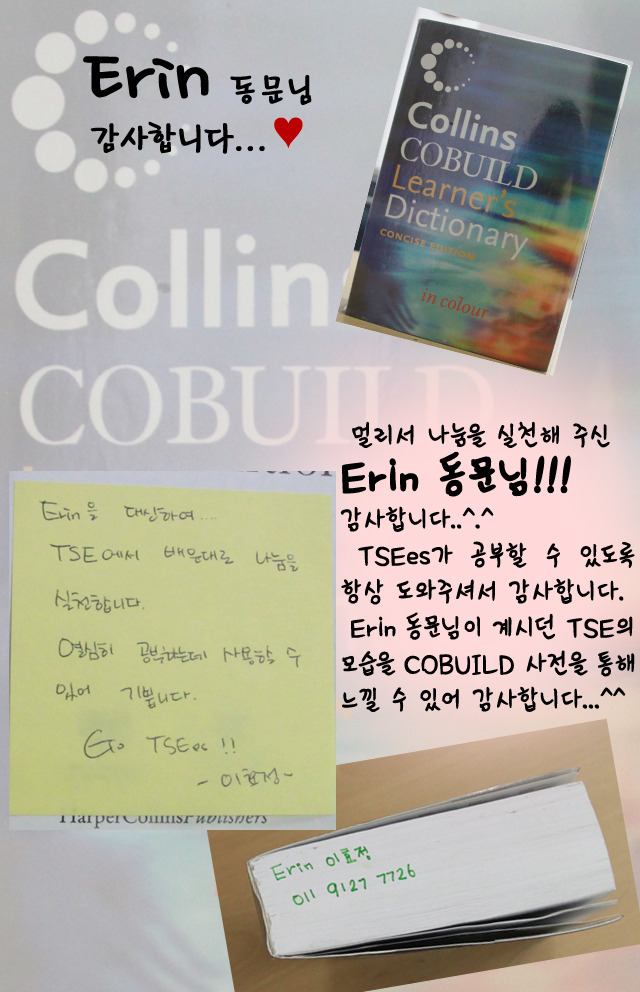 Erin 동문님
감사합니다...♥
Collins
COBUILD
Learner's
Dictionary
CONCISE EDITION
in colour
Collins
COBUILD
멀리서 나눔을 실천해 주신
Erin 동문님!!!
감사합니다..^.^
TSEes가 공부할 수 있도록
항상 도와주셔서 감사합니다.
Erin 동문님이 계시던 TSE의
모습을 COBUILD 사전을 통해
느낄 수 있어 감사합니다...^^
Erin을 대신하여....
TSE에서 배운대로 나눔을
실천합니다.
열심히 공부하는데 사용할 수
있어 기쁩니다.
Go TSEes !!
- 이효정 -
HarperCollinsPublishers
Erin 이효정
011 9127 7726